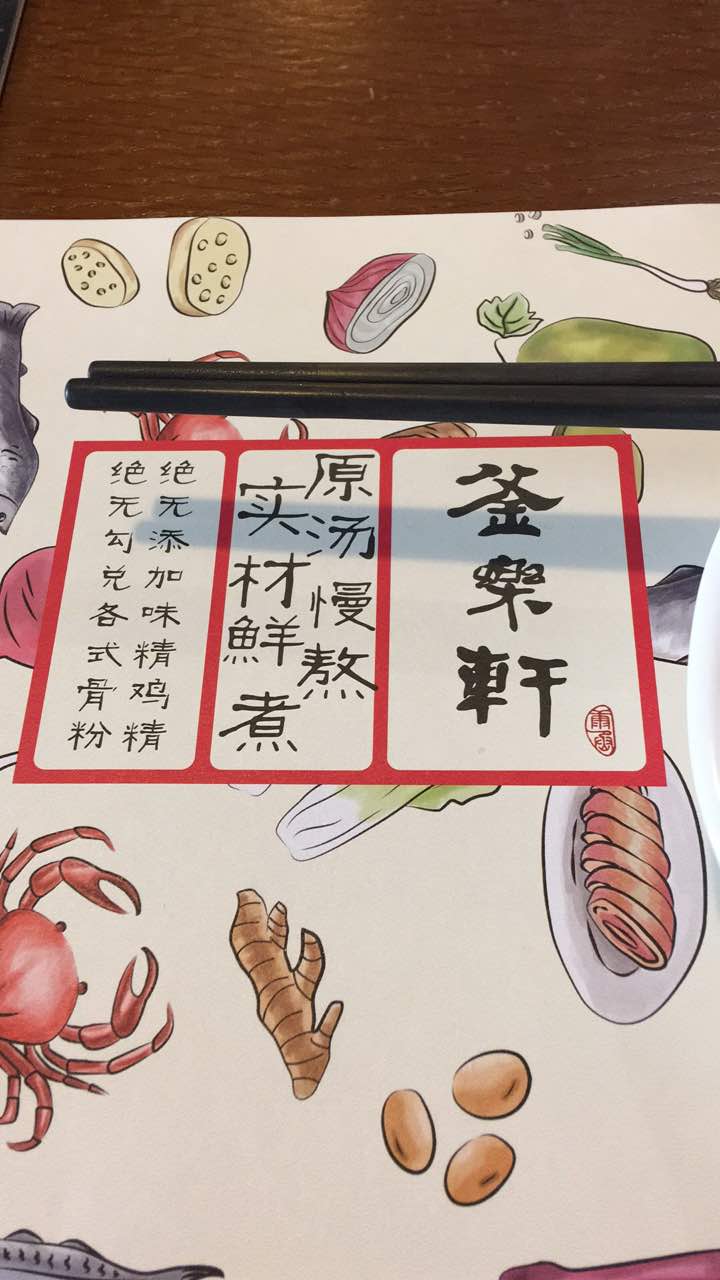 釜樂軒
原汤慢熬
实材鮮煮
绝无添加味精鸡精
绝无勾兑各式骨粉